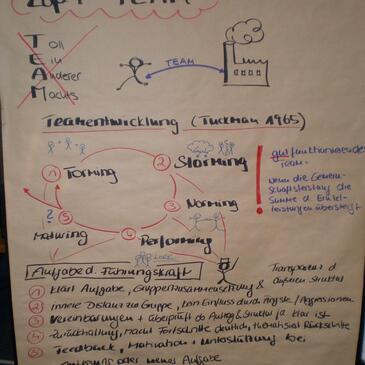 TEAM
Toll
Ein
Anderer
Machts
TEAM
Teamentwicklung (Tuckman 1965)
① Forming
② Storming
③ Norming
④ Performing
⑤
?
gut funktionierendes
TEAM -
wenn die Gemein-
schaftsleistung die
Summe d. Einzel-
leistungen übersteigt
!
Aufgabe d. Führungskraft
Transparenz d
äußeren Struktur
① klärt Aufgabe, Gruppenzusammensetzung &
② innere Distanz zur Gruppe, kein Einfluss durch Ängste / Aggressionen
③ Vereinbarungen + überprüft ob Auftrag & Struktur ja klar ist
④ Zurückhaltung, macht Fortschritte deutlich, thematisiert Rückschritte
⑤ Feedback, Motivation + Unterstützung bei
oder neuer Aufgabe